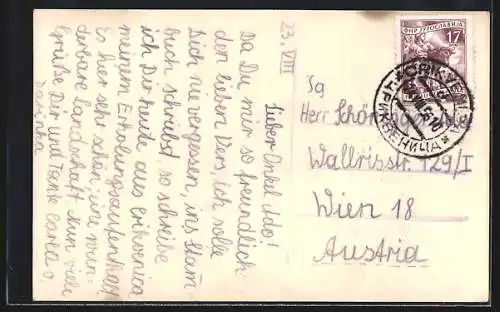 23. VIII
Lieber Onkel Ado!
Da Du mir so freundlich
den lieben Vers, ich solle
Dich nie vergessen, ins Stamm-
buch schriebst, so schreibe
ich Dir heute aus Crikvenica
meinem Erholungsaufenthalt
Es hier sehr schön, eine wun-
derbare Landschaft. Nun viele
Grüße Dir und Tante
ФНР ЈУГОСЛАВИЈА
17
ЦРИКВЕНИЦА
Sg
Herr
Wallrisstr. 129/I
Wien 18
Austria